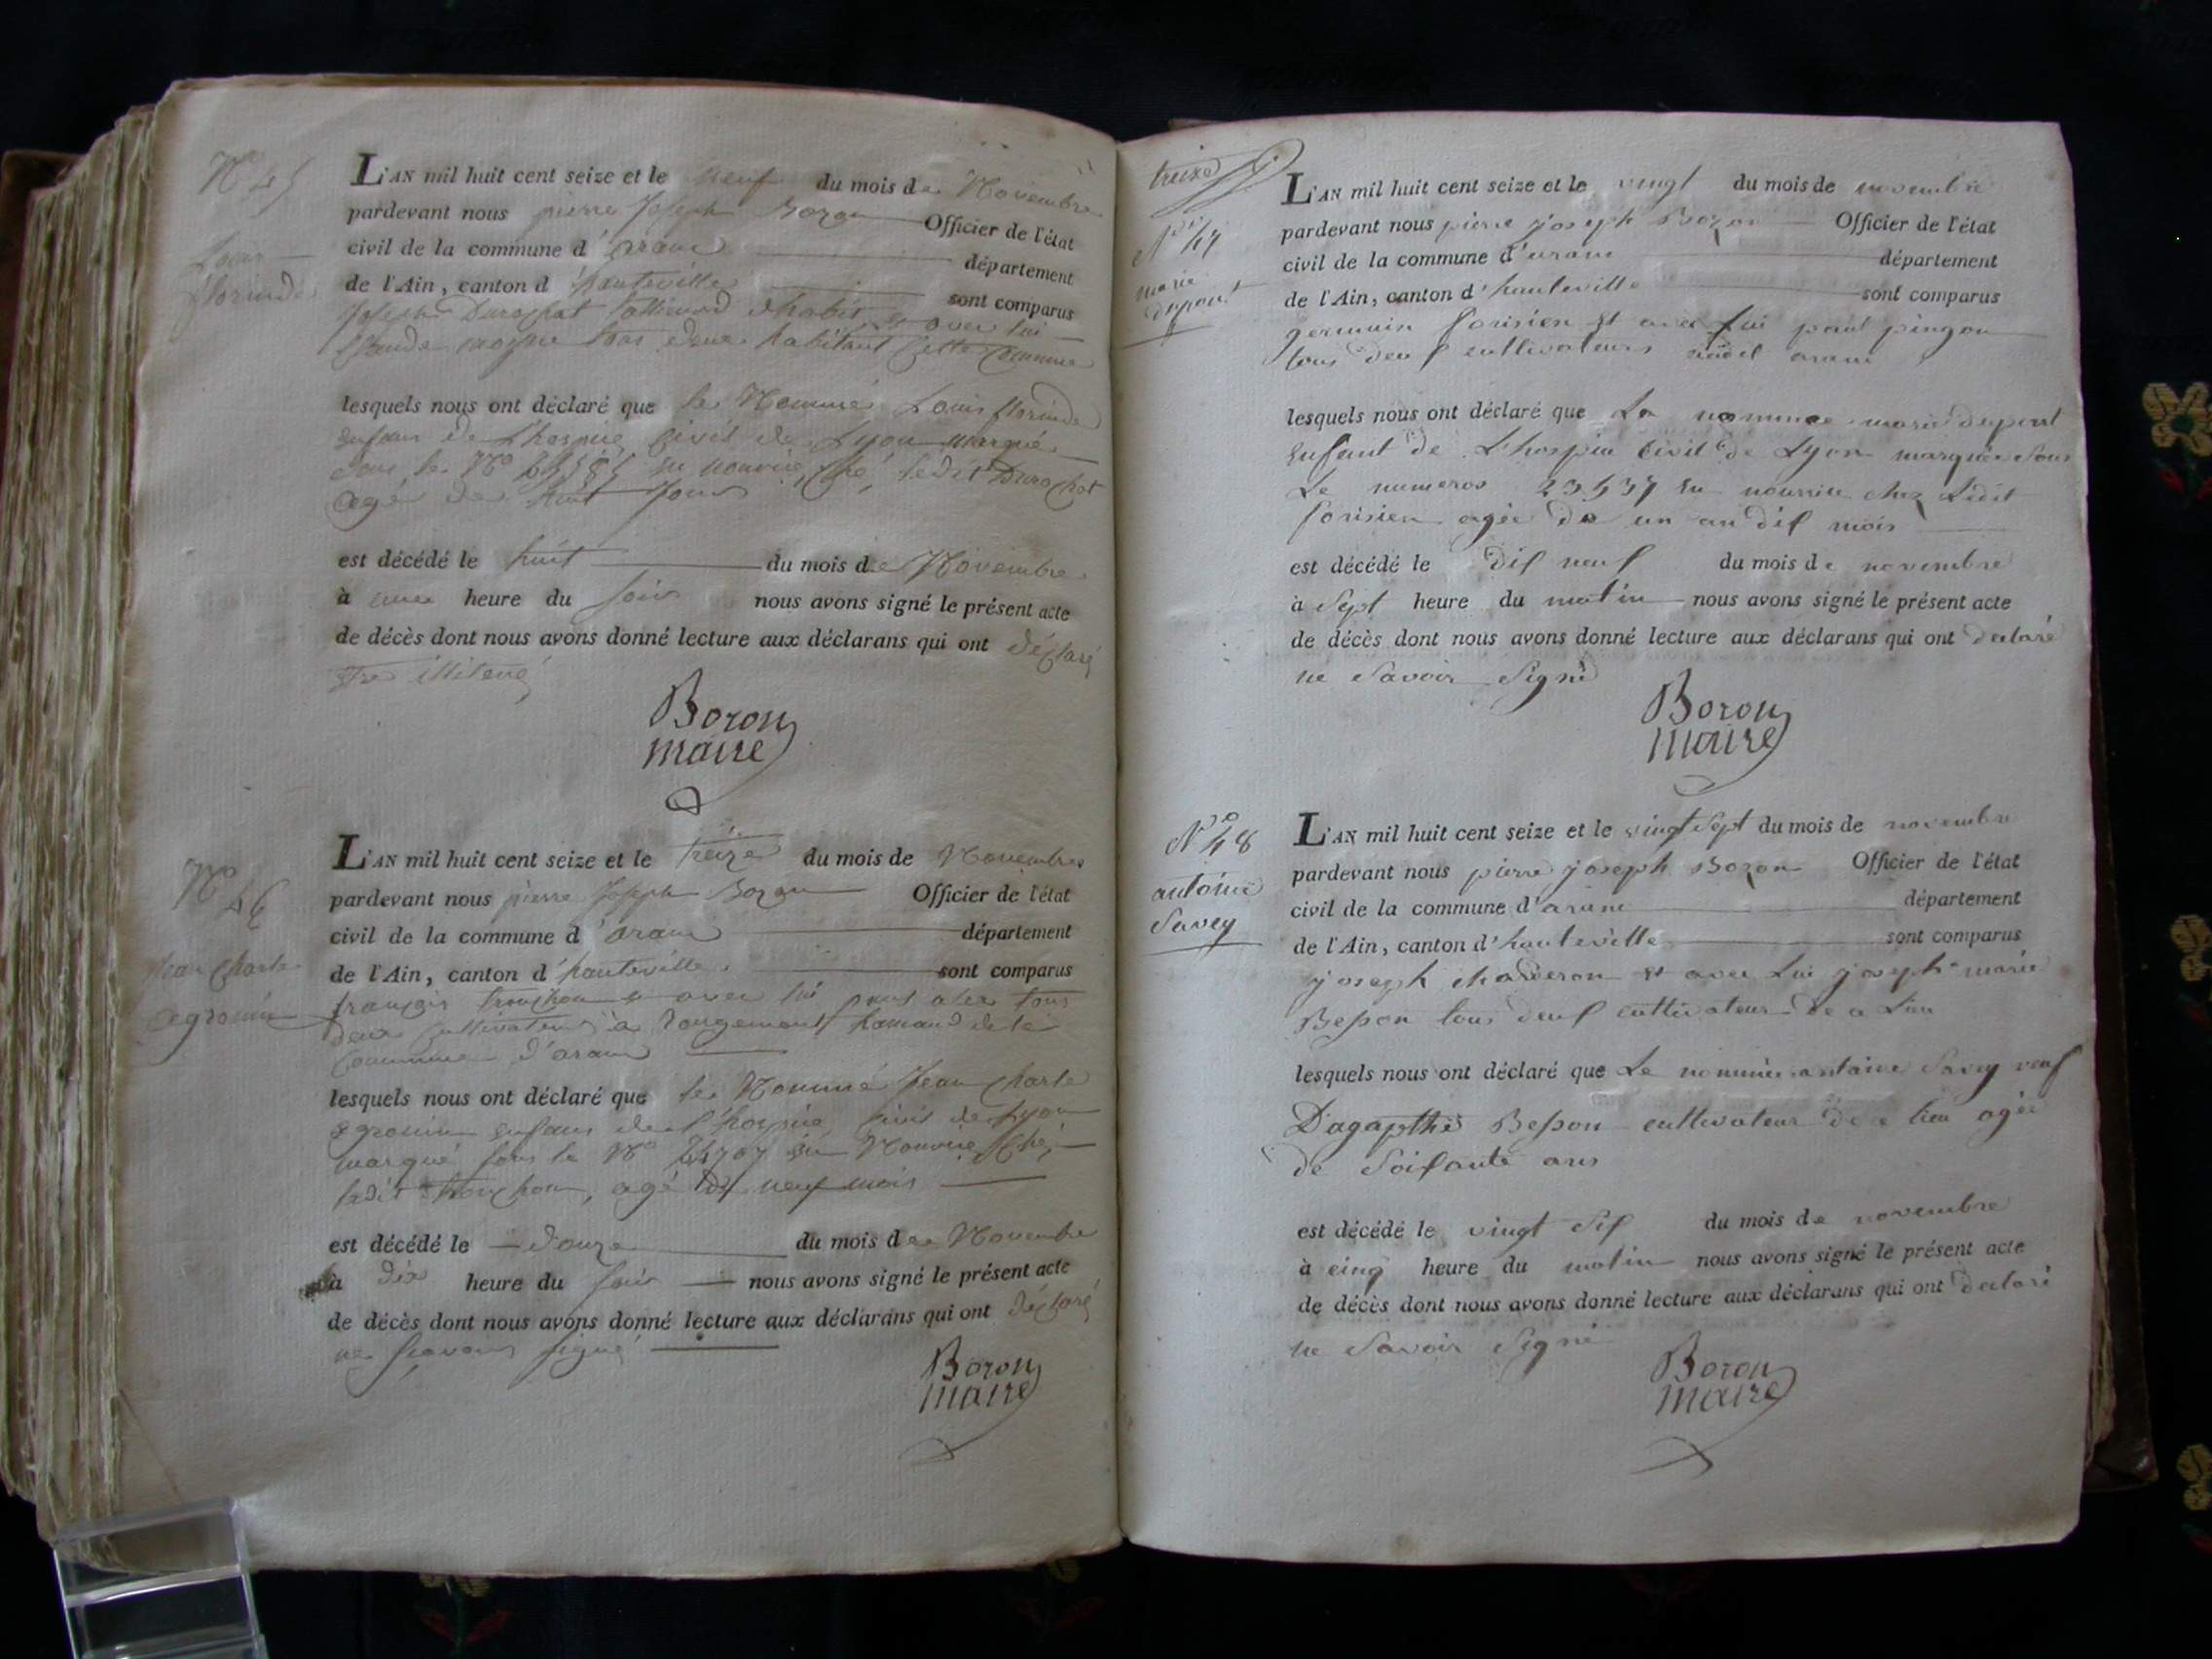 N° 45
Louis
florinde
L'AN mil huit cent seize et le neuf du mois de Novembre
pardevant nous pierre Joseph Bozon Officier de l'état
civil de la commune d'aranc département
de l'Ain, canton d'hauteville sont comparus
Joseph Durochat tallieurd dhabit et avec lui
Claude moyne tous deux habitant cette commune
lesquels nous ont déclaré que le Nommé Louis florinde
enfans de L'hospice civil de Lyon marqué
sous le N° en nourrice ché ledit Durochat
agé de huit Jours
est décédé le huit du mois de Novembre
à une heure du soir nous avons signé le présent acte
de décès dont nous avons donné lecture aux déclarans qui ont déclaré
être illiteré
Bozon
maire
N° 46
Jean Charle
agronin
L'AN mil huit cent seize et le treize du mois de Novembre
pardevant nous pierre Joseph Bozon Officier de l'état
civil de la commune d'aranc département
de l'Ain, canton d'hauteville sont comparus
françois trouchon et avec lui tous
deux cultivateurs à rougemont hamaud de la
commune d'aranc
lesquels nous ont déclaré que le Nommé Jean Charle
agronin enfans de l'hospice civil de Lyon
marqué sous le N° en Nourrice Ché
ledit trouchon, agé de neuf mois
est décédé le douze du mois de Novembre
à dix heure du soir nous avons signé le présent acte
de décès dont nous avons donné lecture aux déclarans qui ont déclaré
ne signé
Bozon
maire
treize
N° 47
marie
dupont
L'AN mil huit cent seize et le vingt du mois de novembre
pardevant nous pierre joseph Bozon Officier de l'état
civil de la commune d'aranc département
de l'Ain, canton d'hauteville sont comparus
germain Sorisien et avec lui paul pingon
tous deuf cultivateurs audit aranc
lesquels nous ont déclaré que La nommee marie dupont
enfant de L'hospice civil de Lyon marquée sous
Le numeros 23537 en nourrice chez Ledit
Sorisien agée de un an dif mois
est décédé le dif neuf du mois de novembre
à Sept heure du matin nous avons signé le présent acte
de décès dont nous avons donné lecture aux déclarans qui ont declaré
ne Savoir Signé
Bozon
maire
N° 48
antoine
Savey
L'AN mil huit cent seize et le vingt Sept du mois de novembre
pardevant nous pierre joseph Bozon Officier de l'état
civil de la commune d'aranc département
de l'Ain, canton d'hauteville sont comparus
joseph chaderon et avec Lui joseph marie
Besson tous deuf cultivateur de ce Lieu
lesquels nous ont déclaré que Le nommée antoine Savey veuf
D'agapthe Besson cultivateur de ce lieu agée
de Soifante ans
est décédé le vingt Sif du mois de novembre
à cinq heure du matin nous avons signé le présent acte
de décès dont nous avons donné lecture aux déclarans qui ont declaré
ne Savoir Signé
Bozon
maire